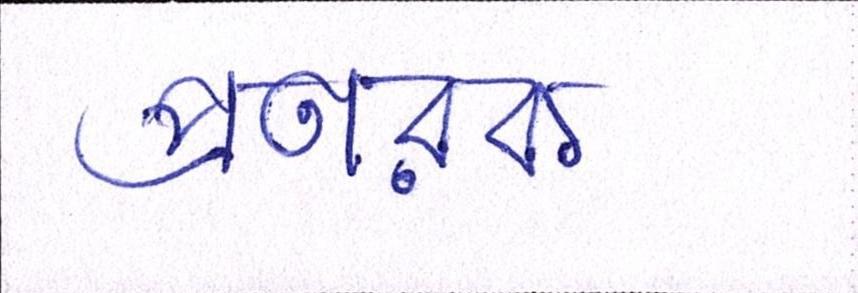 প্রতারক